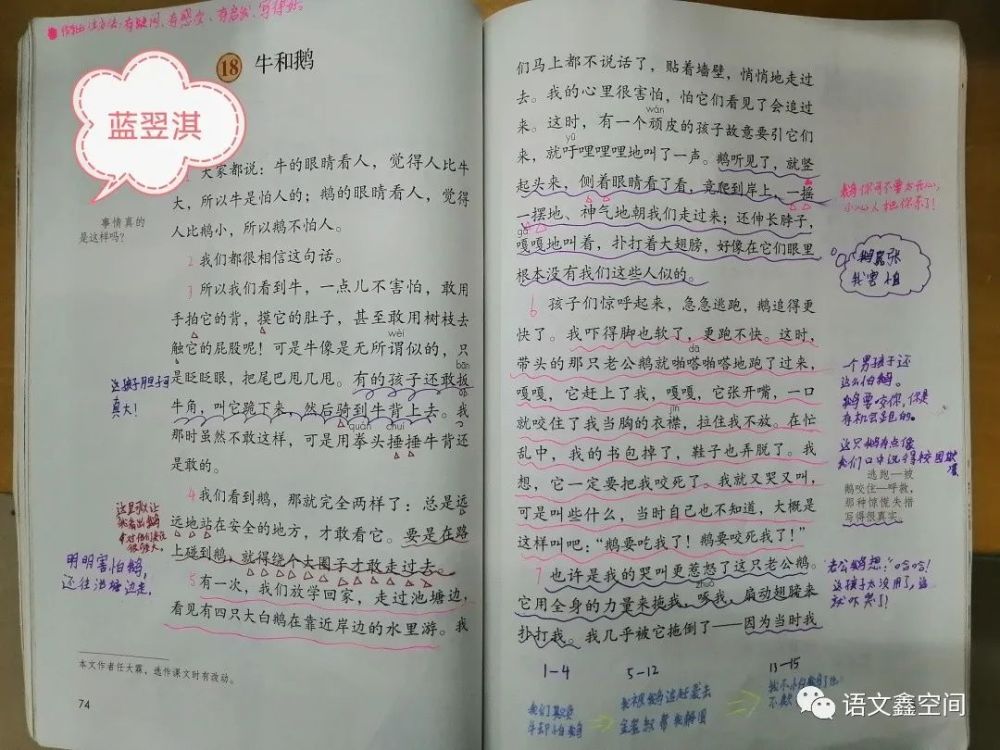 蓝翌淇
18 牛和鹅
大家都说：牛的眼睛看人，觉得人比牛
大，所以牛是怕人的；鹅的眼睛看人，觉得
人比鹅小，所以鹅不怕人。
事情真的
是这样吗？
2 我们都很相信这句话。
3 所以我们看到牛，一点儿不害怕，敢用
手拍它的背，摸它的肚子，甚至敢用树枝去
wèi
触它的屁股呢！可是牛像是无所谓似的，只
bān
是眨眨眼，把尾巴甩几甩。有的孩子还敢扳
牛角，叫它跪下来，然后骑到牛背上去。我
quán chuí
那时虽然不敢这样，可是用拳头捶捶牛背还
是敢的。
这孩子胆子可
真大！
4 我们看到鹅，那就完全两样了：总是远
远地站在安全的地方，才敢看它。要是在路
上碰到鹅，就得绕个大圈子才敢走过去。
明明害怕鹅，
还往池塘边走，
5 有一次，我们放学回家，走过池塘边，
看见有四只大白鹅在靠近岸边的水里游。我
本文作者任大霖，选作课文时有改动。
74
们马上都不说话了，贴着墙壁，悄悄地走过
去。我的心里很害怕，怕它们看见了会追过
wán
来。这时，有一个顽皮的孩子故意要引它们
yū
来，就吁哩哩哩地叫了一声。鹅听见了，就竖
起头来，侧着眼睛看了看，竟爬到岸上，一摇
一摆地、神气地朝我们走过来；还伸长脖子，
gā
嘎嘎地叫着，扑打着大翅膀，好像在它们眼里
根本没有我们这些人似的。
鹅嚣张
我害怕
6 孩子们惊呼起来，急急逃跑，鹅追得更
快了。我吓得脚也软了，更跑不快。这时，
dā
带头的那只老公鹅就啪嗒啪嗒地跑了过来，
嘎嘎，它赶上了我，嘎嘎，它张开嘴，一口
jīn
就咬住了我当胸的衣襟，拉住我不放。在忙
乱中，我的书包掉了，鞋子也弄脱了。我
想，它一定要把我咬死了。我就又哭又叫，
可是叫些什么，当时自己也不知道，大概是
这样叫吧：“鹅要吃我了！鹅要咬死我了！”
一个男孩子还
这么怕鹅。
这只鹅有点像
逃跑—被
鹅咬住—呼救，
那种惊慌失措
写得很真实。
7 也许是我的哭叫更惹怒了这只老公鹅。
zhuó
它用全身的力量来拖我，啄我，扇动翅膀来
扑打我。我几乎被它拖倒了——因为当时我
老公鹅想：“哈哈！
这孩子太没用了，这
就吓哭了！
1-4
5-12
13-15
语文鑫空间